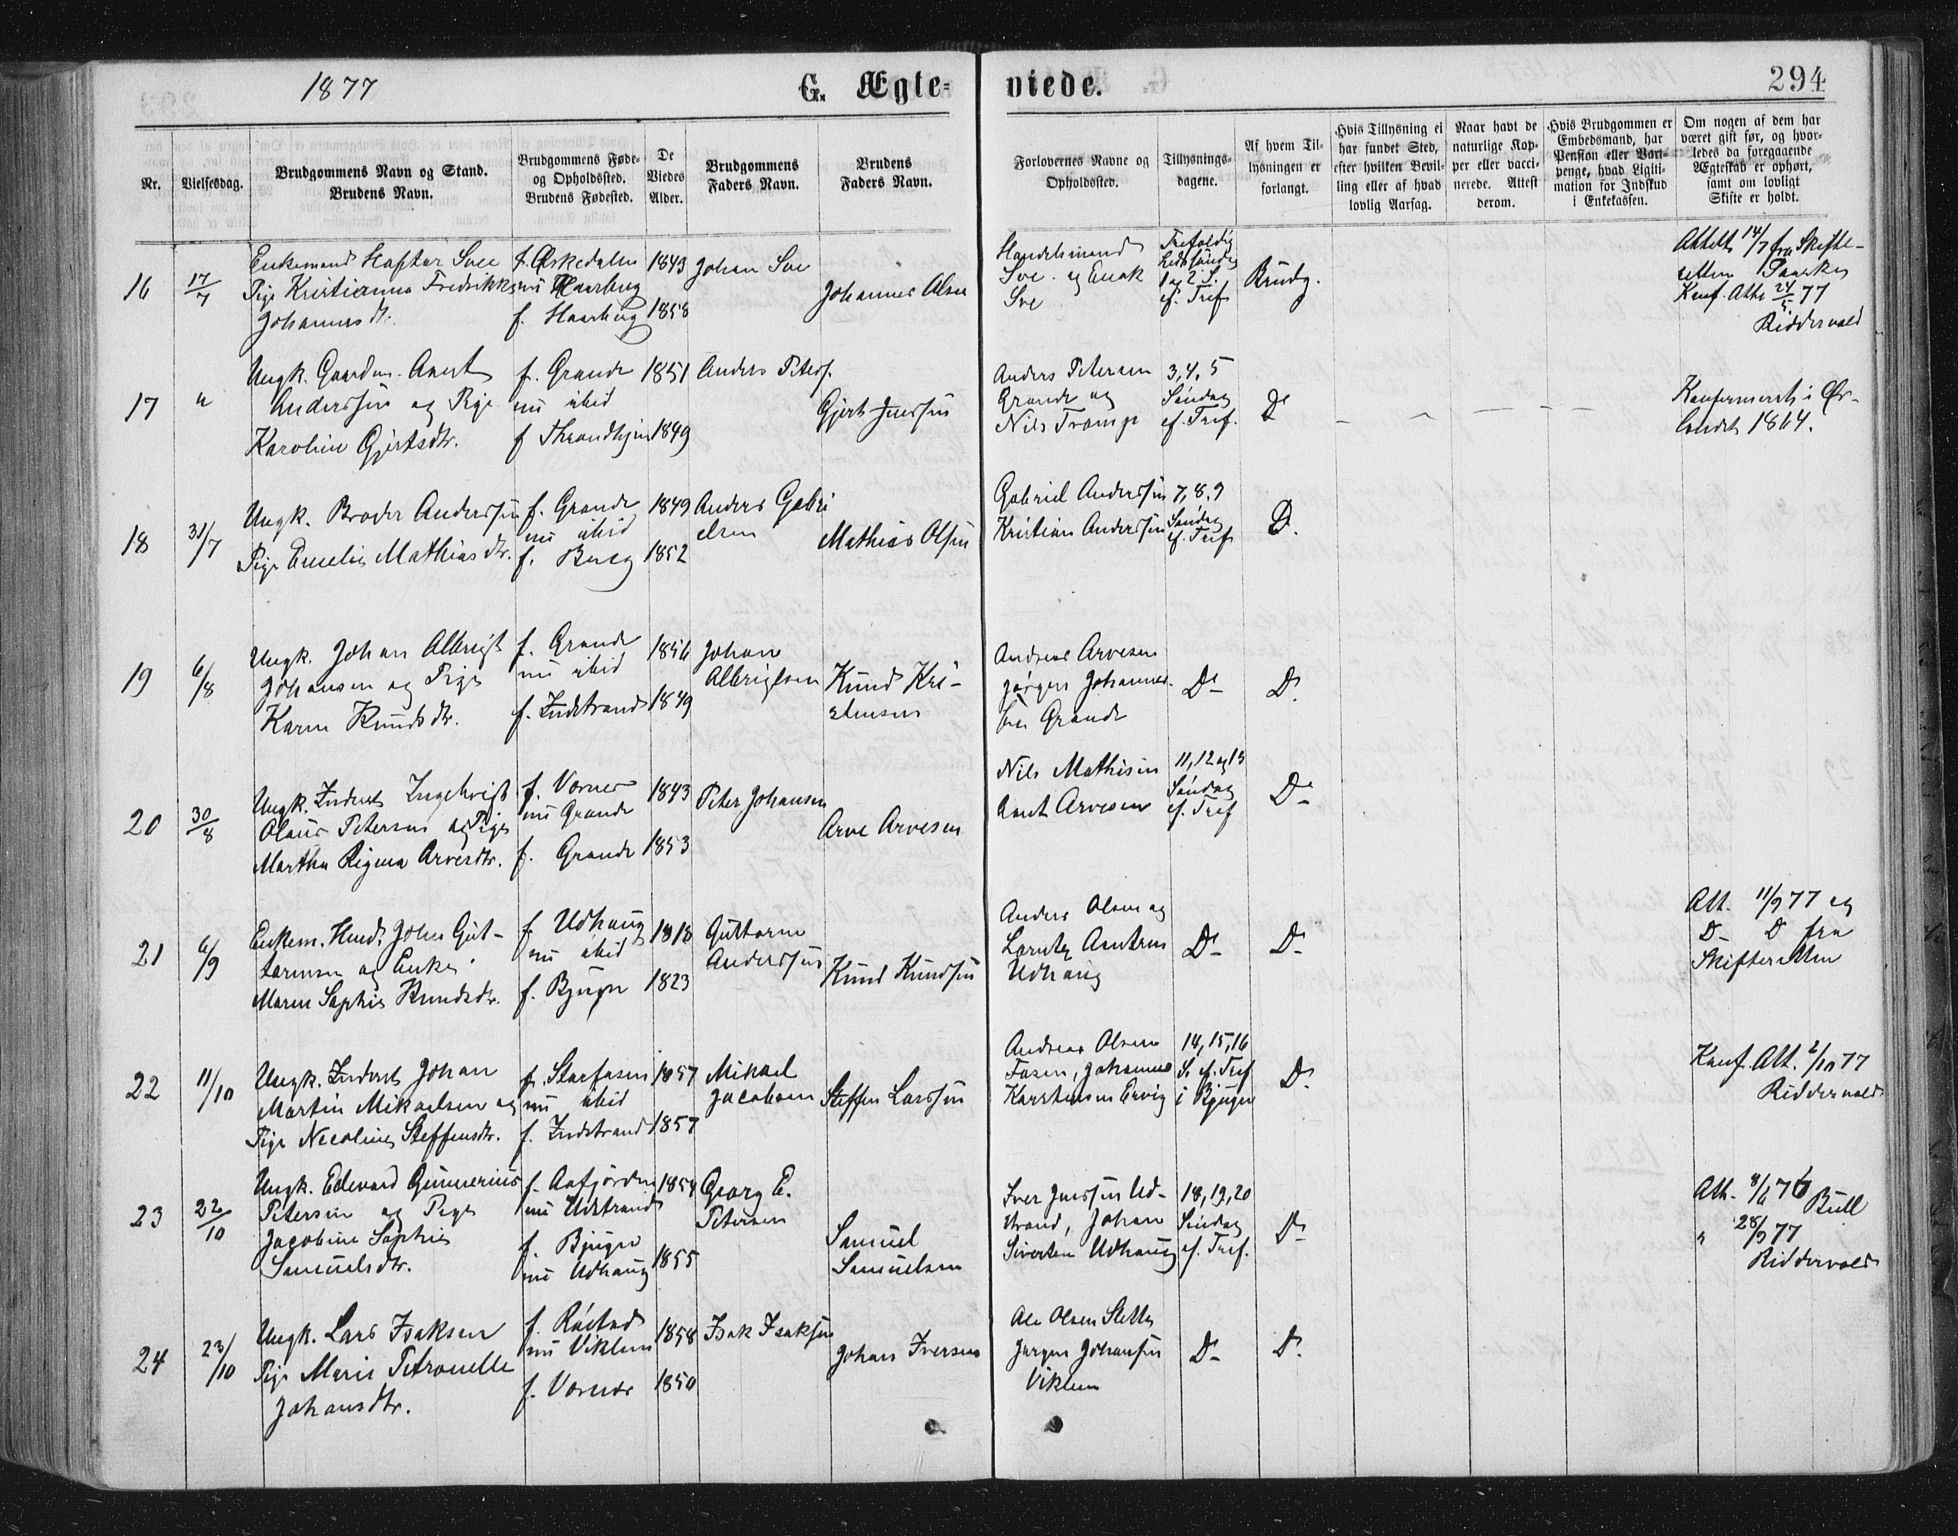 1877
G. Ægte=
viede.
294
Nr.
Vielsesdag.
Brudgommens Navn og Stand.
Brudens Navn.
Brudgommens Føde-
og Opholdssted.
Brudens Fødested.
De
Viedes
Alder.
Brudgommens
Faders Navn.
Brudens
Faders Navn.
Forlovernes Navne og
Opholdssted.
Tillysnings-
dagene.
Af hvem Til-
lysningen er
forlangt.
Hvis Tillysning ei
har fundet Sted,
efter hvilken Bevil-
ling eller af hvad
lovlig Aarsag.
Naar havt de
naturlige Kop-
per eller vacci-
nerede. Attest
derom.
Hvis Brudgommen er
Embedsmand, har
Pension eller Var-
penge, hvad Ligiti-
mation for Indskud
i Enkekassen.
Om nogen af dem har
været gift før, og hvor-
ledes da foregaaende
Ægteskab er ophørt,
samt om lovligt
Skifte er holdt.
16
17/7
Enkemand Haftor Svee
Pige Kristianna Fredrikke
Johannesdtr.
f. Ørkedalen
nu Haarberg
f. Haarberg
1843
1858
Johan Sve
Johannes Olsen
Handelsmand
Sve og Enok
Sve
Trefoldig
hedssøndag
1 og 2 S.
ef. Tref
Brudg.
Attest 14/7 fra Skifte-
retten
Konf. Att. 24/5 77
Riddervold
17
"
Ungk. Gaardm. Anert
Anderssen og Pige
Karoline Gjertsdtr.
f. Grande
nu ibid
f Throndhjem
1851
1849
Anders Peters.
Gjert Jenssen
Anders Petersen
Grande og
Nils Tramp
3, 4, 5
Søndag
ef. Tref.
Do
Konfirmeret i Ør-
landet 1864.
18
31/7
Ungk. Broder Anderssen
Pige Emelie Mathiasdtr.
f. Grande
nu ibid
f. Berg
1849
1852
Anders Gabri
elsen
Mathias Olsen
Gabriel Anderssen
Kristian Anderssen
7, 8, 9
Søndag
ef. Tref
Do.
19
6/8
Ungk. Johan Albrigt
Johansen og Pige
Karen Knudsdtr.
f. Grande
nu ibid
f. Indstrand
1856
1849
Johan
Albrigtsen
Knud Kri-
stensen
Andreas Arvesen
Jørgen Johannes-
sen Grande
Do
Do
20
30/8
Ungk. Inderst Ingebrigt
Olaus Petersen og Pige
Martha Regina Arvesdtr.
f. Vernes
nu Grande
f. Grande
1843
1853
Peter Johansen
Arve Arvesen
Nils Mathisen
Arvesen
11, 12 og 13
Søndag
ef. Tref
Do
21
6/9
Enkem. Huusm. Johan Gut-
tormsen og Enke
Maren Sophie Knudsdtr.
f. Udhaug
nu ibid
f. Bjugn
1818
1823
Guttorm
Anderssen
Knud Knudsen
Anders Olsen og
Lorentz Arntsen
Udhaug
Do
Do
Att. 11/9 77 og
Do Do fra
Skifteretten
22
11/10
Ungk. Inderst Johan
Martin Mikaelsen og
Pige Nicoline Steffensdtr.
f. Storfosen
nu ibid
f. Indstrand
1857
1857
Mikael
Jacobsen
Steffen Larssen
Andreas Olsen
Fosen, Johannes
Karstensen Ervig
14, 15, 16
S. ef. Tref
i Bjugn
Do
Konf. Att. 2/10 77
Riddervold
23
22/10
Ungk. Edevard Gunnerius
Petersen og Pige
Jacobine Sophie
Samuelsdtr.
f. Aafjorden
nu Udstrand
f. Bjugn
nu Udhaug
1854
1855
Georg E.
Petersen
Samuel
Samuelsen
Iver Jenssen Ud-
strand, Johan
Sivertsen Udhaug
18, 19, 20
Søndag
ef. Tref.
Do
Att. 8/6 76 Bull
" 28/9 77
Riddervold
24
23/10
Ungk. Lars Isaksen
Pige Marie Petronelle
Johansdtr.
f. Røstad
nu Viklem
f. Vernes
1858
1850
Isak Isaksen
Johan Iversen
Ole Olsen Slette
Jørgen Johansen
Viklem
Do
Do